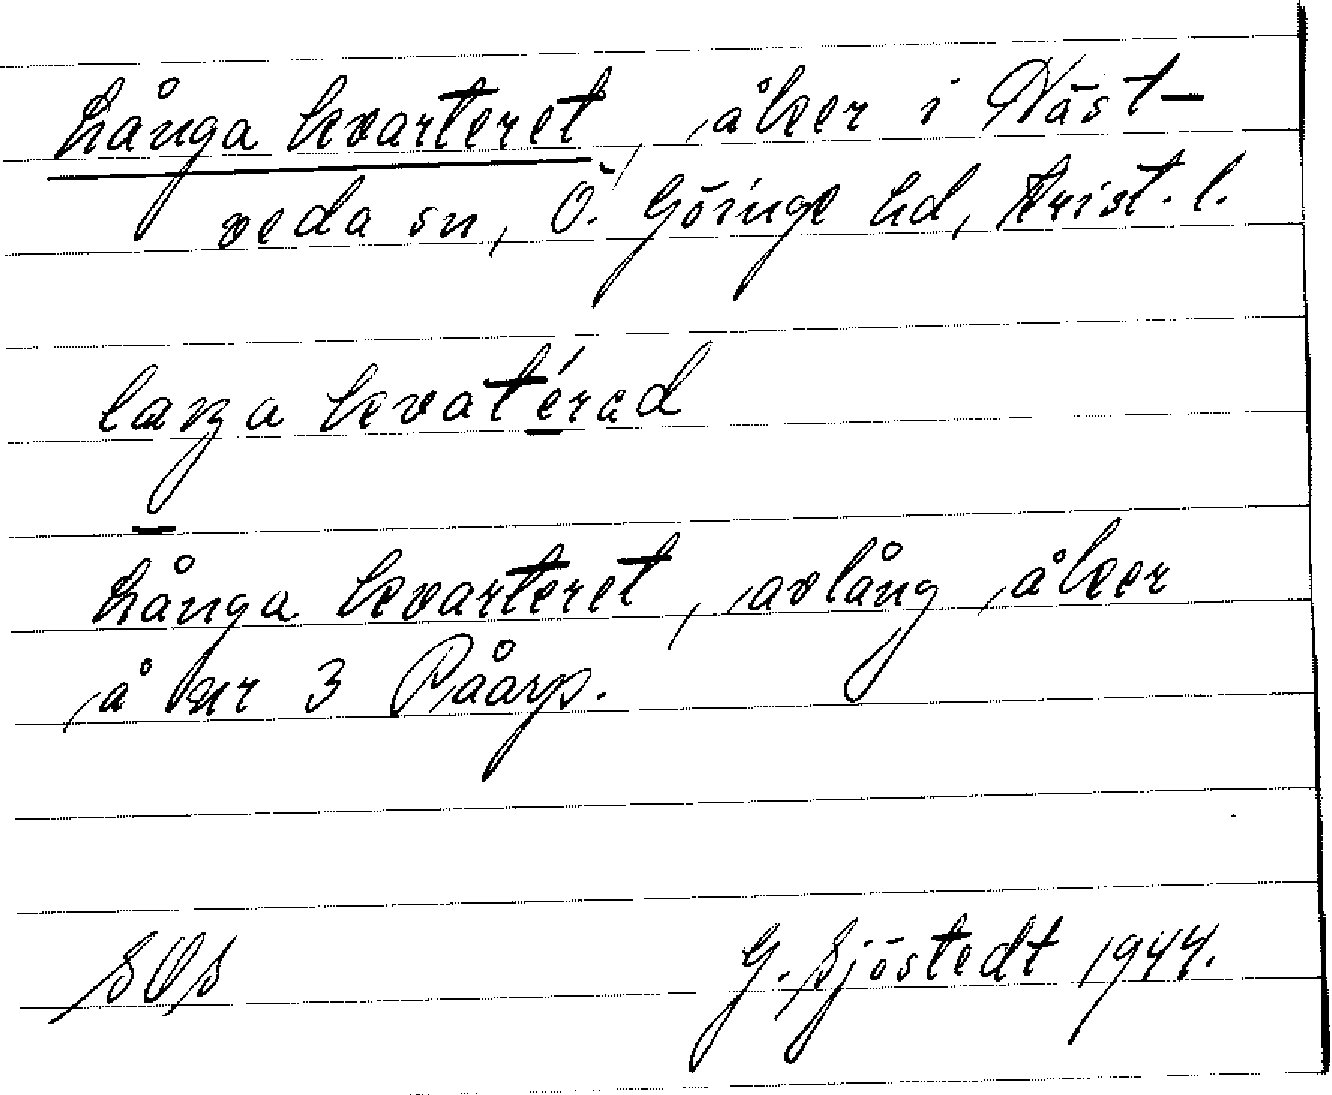 Långa kvarteret, åker i Näst-
veda sn, Ö. Göinge hd, Krist. l.
laŋa kvatérad
Långa kvarteret, avlång åker
å nr 3 Påarp.
SOS G. Sjöstedt 1944.